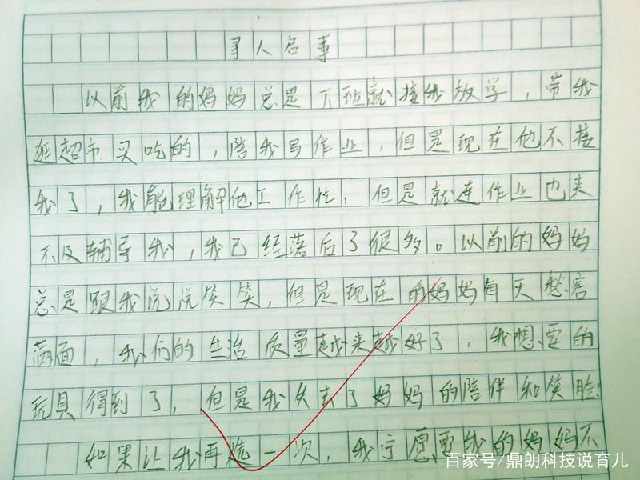 寻人启事
以前我的妈妈总是下班就接我放学，带我
逛超市买吃的，陪我写作业，但是现在他不接
我了，我能理解他工作忙，但是就连作业也来
不及辅导我，我已经落后了很多。以前的妈妈
总是跟我说说笑笑，但是现在的妈妈每天愁容
满面，我们的生活质量越来越好了，我想要的
玩具得到了，但是我失去了妈妈的陪伴和笑脸
如果让我再选一次，我宁愿要我的妈妈不
百家号/鼎朗科技说育儿